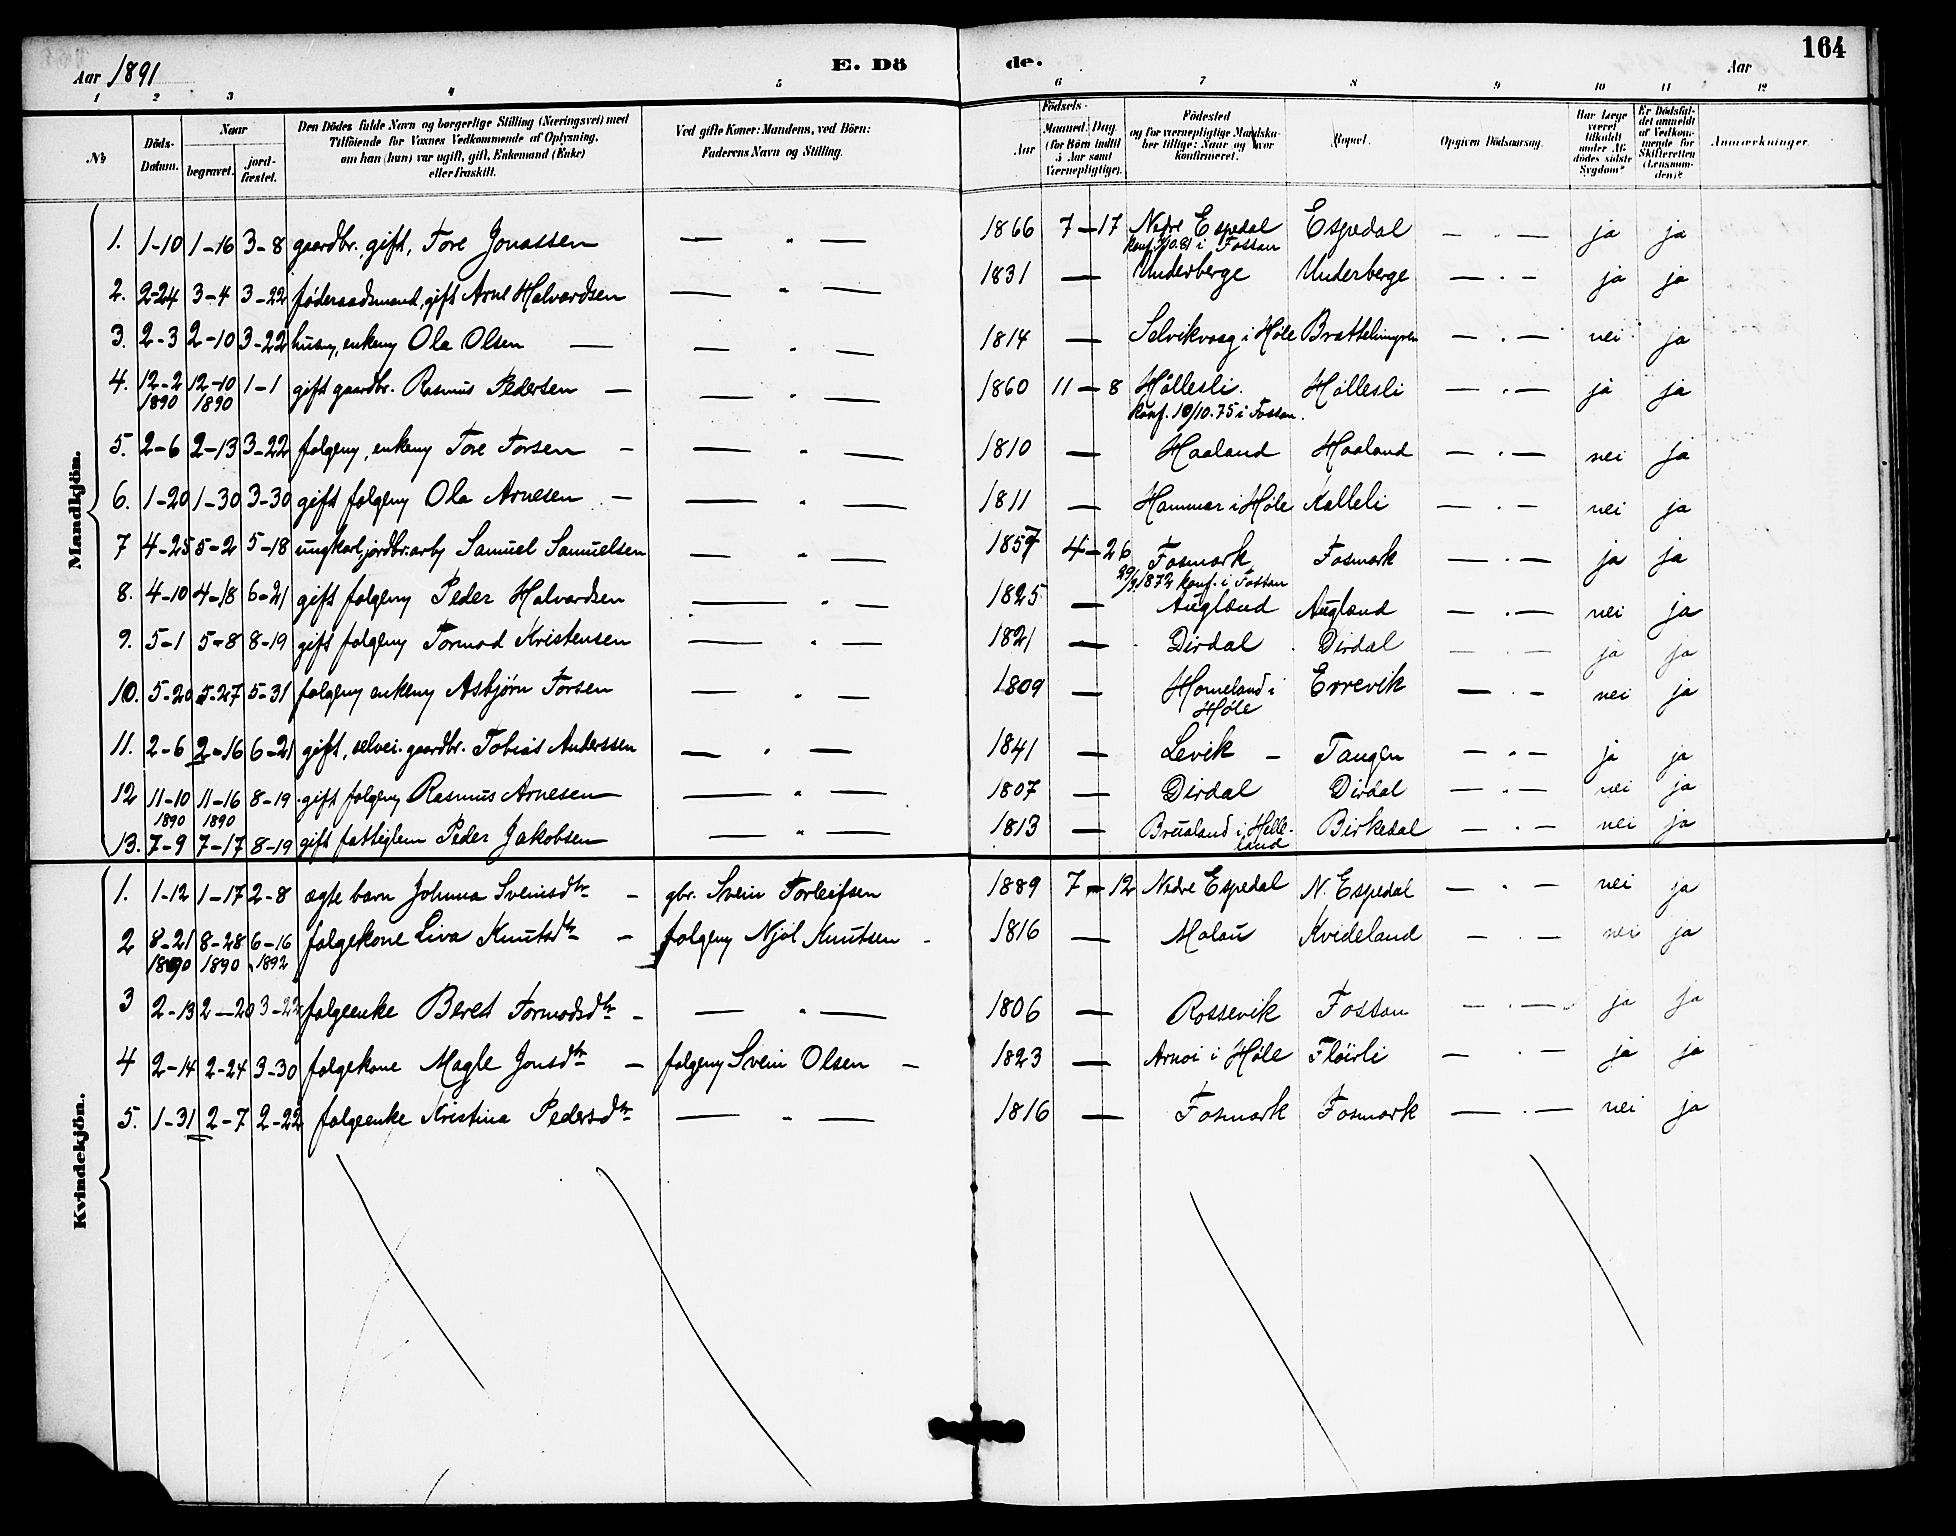 Aar 1891 E. Dö de. Aar 164
1 2 3 4 5 6 7 8 9 10 11 12
No Döds-Datum. Naar begravet. jordfæstet. Den Dödes fulde Navn og borgerlige Stilling (Næringsvei) med Tilföiende for Voxnes Vedkommende af Oplysning, om han (hun) var ugift, gift, Enkemand (Enke) eller fraskilt. Ved gifte Koner: Mandens, ved Börn: Faderens Navn og Stilling. Födsels- Aar Maaned Dag (for Börn indtil 5 Aar samt Værnepligtige). Födested og for værnepligtige Mandskaber tillige: Naar og hvor konfirmeret. Bopæl. Opgiven Dödsaarsag. Har Læge været tilkaldt under Afdödes sidste Sygdom? Er Dödsfaldet anmeldt af Vedkommende for Skifteretten (Lensmanden)? Anmærkninger.
Mandkjön.
1. 1-10 1-16 3-8 gaardbr. gift, Tore Jonassen — " — 1866 7-17 Nedre Espedal Espedal — " — ja ja
konf. 2/10 81 i Fossan
2. 2-24 3-4 3-22 føderaadsmand, gift Arne Halvardsen — " — 1831 — Underberge Underberge — " — ja ja
3. 2-3 2-10 3-22 husm, enkem Ola Olsen — — " — 1814 — Selvikvaag i Høle Brattelimyren — " — nei ja
4. 12-2 12-10 1-1 gift gaardbr. Rasmus Pedersen — — " — 1860 11-8 Höllesli. Höllesli — " — ja ja
1890 1890 konf. 10/10. 75 i Fossan.
5. 2-6 2-13 3-22 folgem, enkem Tore Torsen — — " — 1810 — Haaland Haaland — " — nei ja
6. 1-20 1-30 3-30 gift folgem Ola Arnesen — — " — 1811 — Hammar i Høle Kalleli — " — nei ja
7 4-25 5-2 5-18 ungkarl, jordbr. arb Samuel Samuelsen — " — 1857 4-26 Fosmark Fosmark — " — ja ja
29/9 1872 konf. i Fossan
8. 4-10 4-18 6-21 gift folgem Peder Halvardsen — " — 1825 — Augland Augland — " — nei ja
9. 5-1 5-8 8-19 gift folgem Tormod Kristensen — " — 1821 — Dirdal Dirdal — " — ja ja
10. 5-20 5-27 5-31 folgem enkem Asbjørn Torsen — " — 1809 — Homeland i Errevik — " — nei ja
Høle
11. 2-6 2-16 6-21 gift, selvei. gaardbr. Tobias Anderssen — " — 1841 — Levik — Tangen — " — ja ja
12 11-10 11-16 8-19 gift folgem Rasmus Arnesen — " — 1807 — Dirdal Dirdal — " — nei ja
1890 1890
13. 7-9 7-17 8-19 gift fattiglem Peder Jakobsen — " — 1813 — Brualand i Helleland Birkedal — " — nei ja
Kvindekjön.
1. 1-12 1-17 2-8 ægte barn Johnna Sveinsdtr — gbr. Svein Torleifsen 1889 7-12 Nedre Espedal N. Espedal — " — nei ja
2 8-21 8-28 6-16 folgekone Liva Knutsdtr — folgem Njøl Knutsen — 1816 — Molau Kvideland — " — nei ja
1890 1890 1892
3 2-13 2-20 3-22 folgeenke Beret Tormodsdtr — — " — 1806 — Rossevik Fossan — " — ja ja
4 2-14 2-24 3-30 folgekone Magle Jonsdtr — folgem Svein Olsen — 1823 — Arnoi i Høle Fløirli — " — ja ja
5. 1-31 2-7 2-22 folgeenke Kristina Pedersdtr — " — 1816 — Fosmark Fosmark — " — nei ja